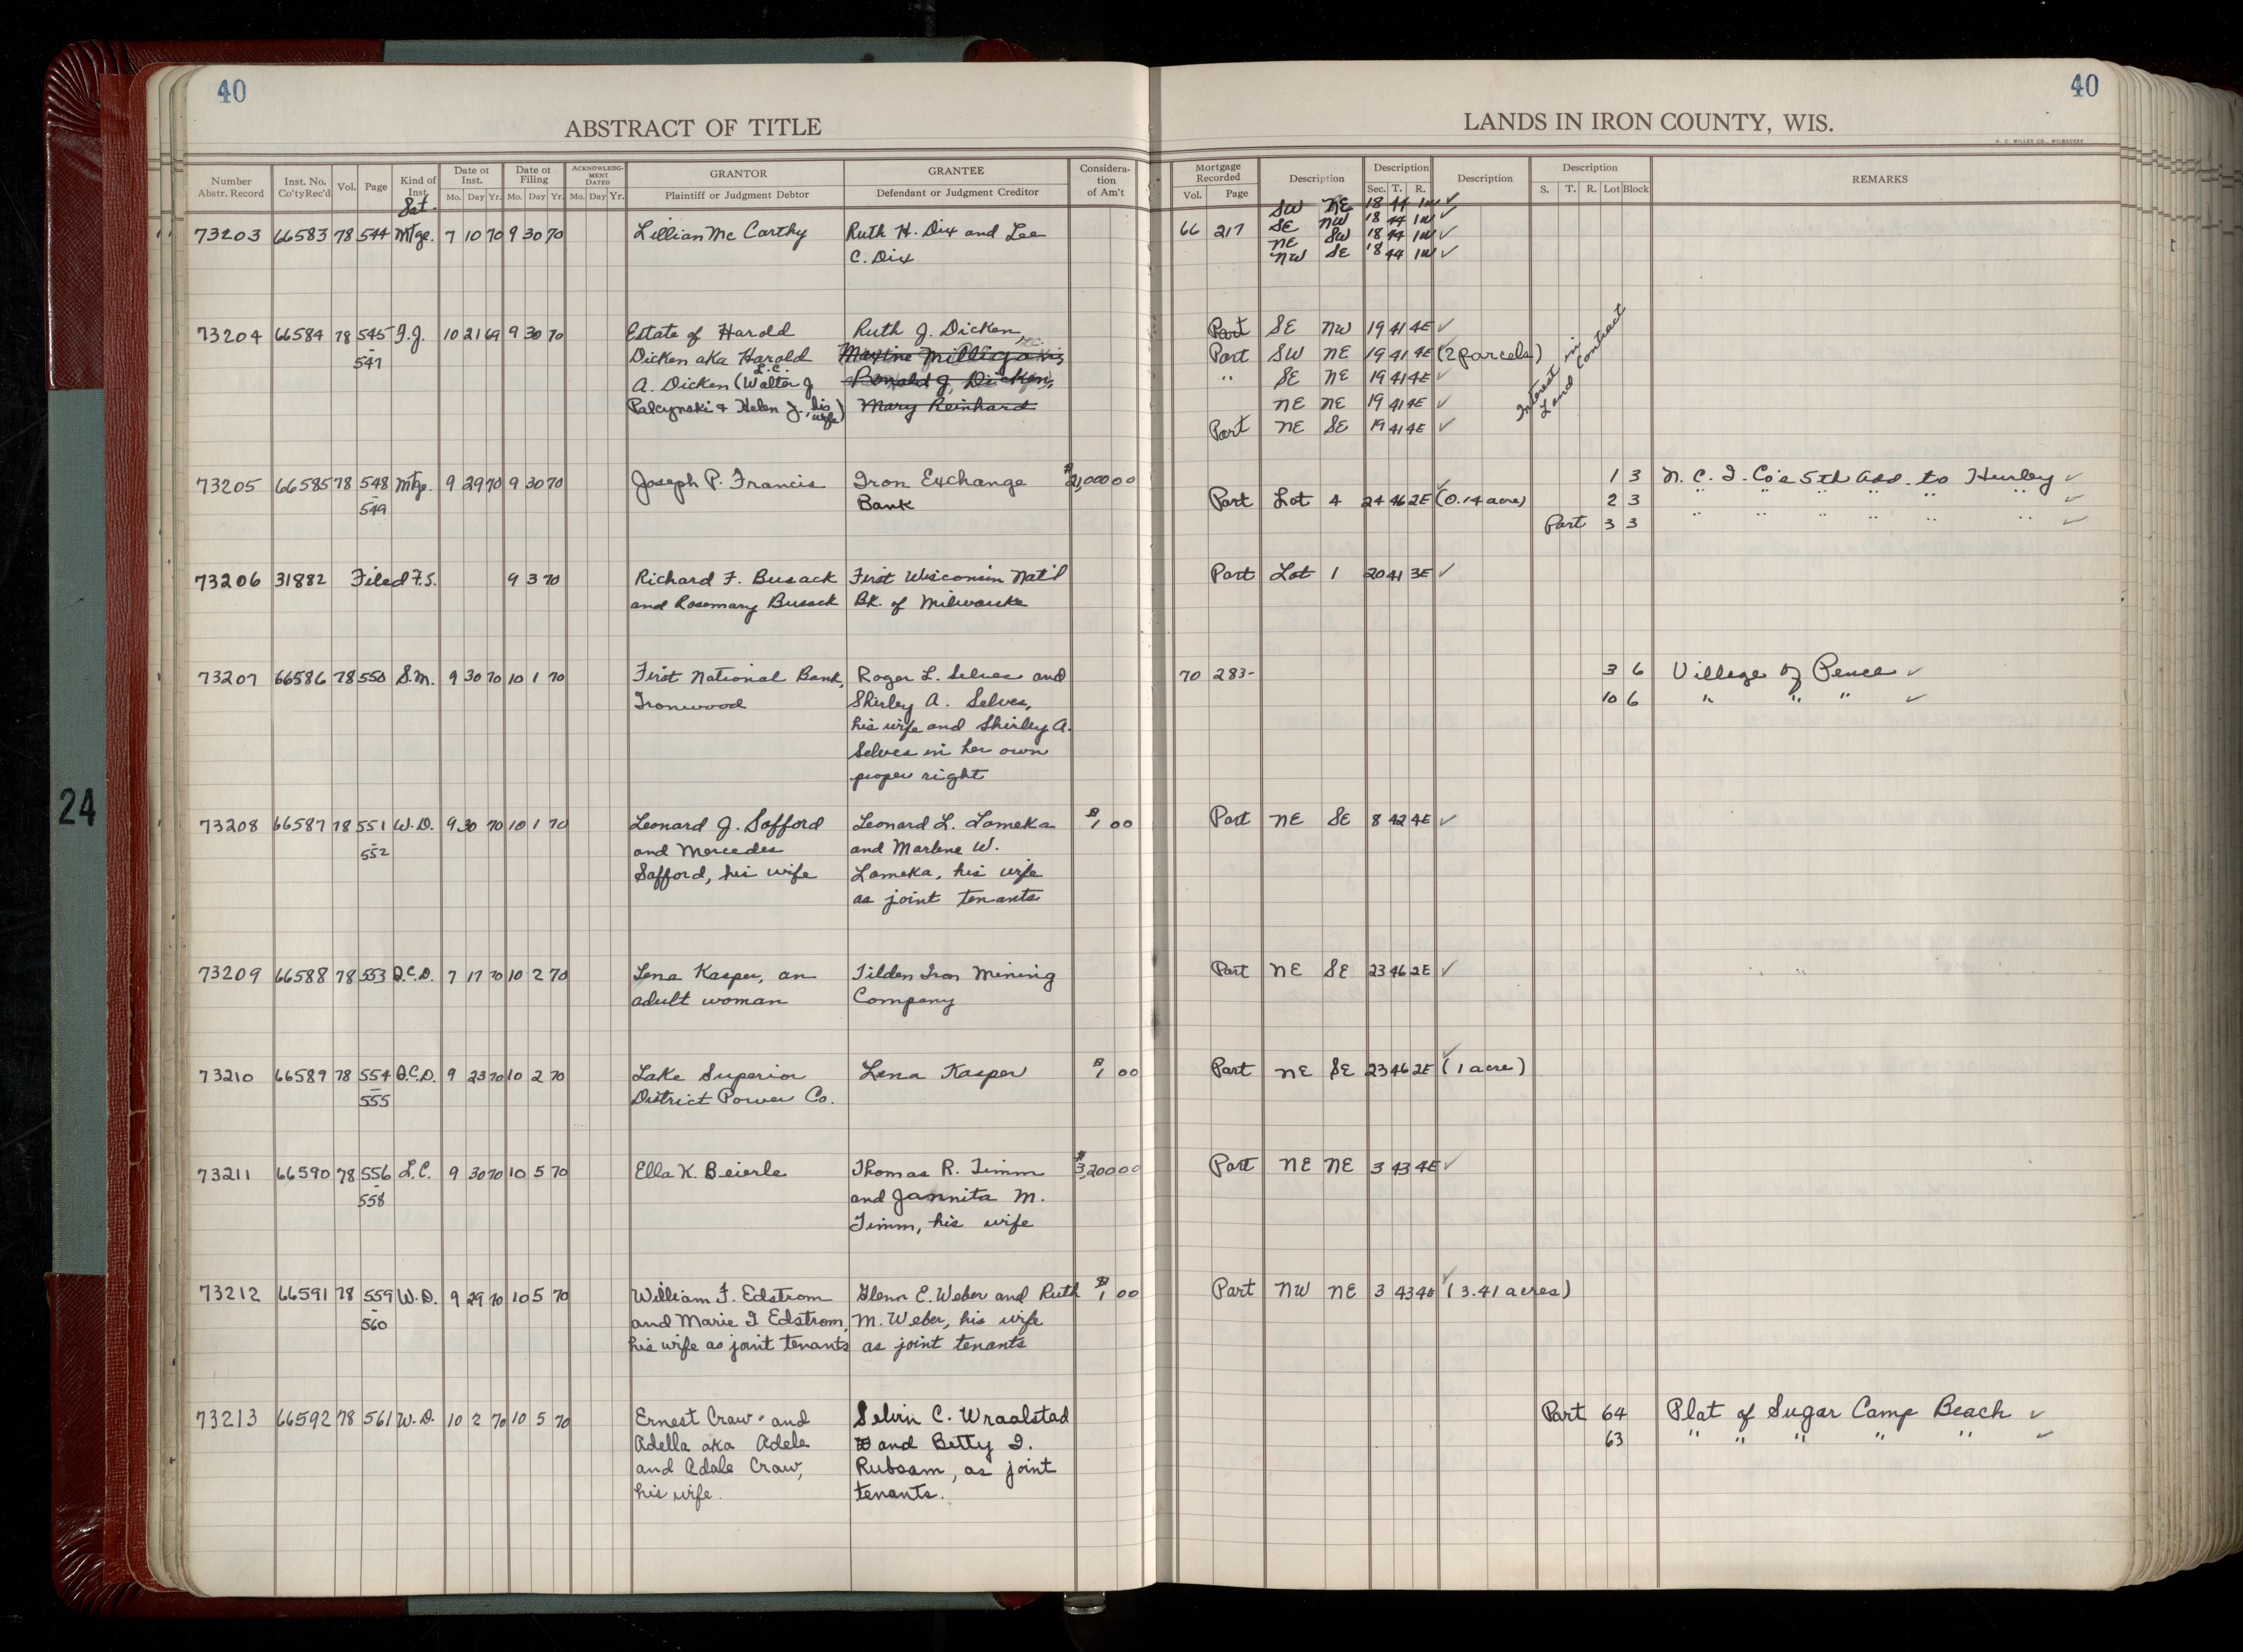 40
ABSTRACT OF TITLE
Number Abstr. Record
Inst. No. Co'ty Rec'd
Vol.
Page
Kind of Inst.
Date of Inst.
Mo. Day Yr.
Date of Filing
Mo. Day Yr.
ACKNOWLEDGMENT DATED
Mo. Day Yr.
GRANTOR
Plaintiff or Judgment Debtor
GRANTEE
Defendant or Judgment Creditor
Consideration of Am't
40
LANDS IN IRON COUNTY, WIS.
H. C. MILLER CO., MILWAUKEE
Mortgage Recorded
Vol. Page
Description
Description
Sec. T. R.
Description
Description
S. T. R. Lot Block
REMARKS
24
Sat.
73203 66583 78 544 Mtge. 7 10 70 9 30 70 Lillian Mc Carthy Ruth H. Dix and Lee
C. Dix
66 217
SW NE 18 44 1W ✓
SE NW 18 44 1W ✓
NE SW 18 44 1W ✓
NW SE 18 44 1W ✓
73204 66584 78 545 F.J. 10 21 69 9 30 70 Estate of Harold Ruth J. Dicken,
- 547 Dicken aka Harold Maxine Milligan
L.C.
A. Dicken (Walter J Ronald J. Dicken,
Palcynski & Helen J., his wife) Mary Reinhard
Part SE NW 19 41 4E ✓
Part SW NE 19 41 4E (2 parcels)
" SE NE 19 41 4E ✓
NE NE 19 41 4E ✓
Part NE SE 19 41 4E ✓
Interest in Land Contract
73205 66585 78 548 Mtge. 9 29 70 9 30 70 Joseph P. Francis Iron Exchange $21,000 00
- 549 Bank
1 3 N. C. I. Co's 5th Add. to Hurley ✓
Part Lot 4 24 46 2E ✓ (0.14 acre) 2 3 " " " " " " ✓
Part 3 3 " " " " " " ✓
73206 31882 Filed F.S. 9 3 70 Richard F. Busack First Wisconsin Nat'l
and Rosemary Busack Bk. of Milwaukee
Part Lot 1 20 41 3E ✓
73207 66586 78 550 S.M. 9 30 70 10 1 70 First National Bank, Roger L. Selves and
Ironwood Shirley A. Selves,
his wife and Shirley A.
Selves in her own
proper right
70 283- 3 6 Village of Pence ✓
10 6 " " " ✓
73208 66587 78 551 W.D. 9 30 70 10 1 70 Leonard J. Safford Leonard L. Lameka $1 00
- 552 and Mercedes and Marlene W.
Safford, his wife Lameka, his wife
as joint tenants
Part NE SE 8 42 4E ✓
73209 66588 78 553 Q.C.D. 7 17 70 10 2 70 Lena Kasper, an Tilden Iron Mining
adult woman Company
Part NE SE 23 46 2E ✓
73210 66589 78 554 Q.C.D. 9 23 70 10 2 70 Lake Superior Lena Kasper $1 00
- 555 District Power Co.
Part NE SE 23 46 2E ✓ (1 acre)
73211 66590 78 556 L.C. 9 30 70 10 5 70 Ella K. Beierle Thomas R. Timm $3,200 00
- 558 and Jannita M.
Timm, his wife
Part NE NE 3 43 4E ✓
73212 66591 78 559 W.D. 9 29 70 10 5 70 William F. Edstrom Glenn E. Weber and Ruth $1 00
- 560 and Marie I Edstrom, M. Weber, his wife
his wife as joint tenants as joint tenants
Part NW NE 3 43 4E ✓ (3.41 acres)
73213 66592 78 561 W.D. 10 2 70 10 5 70 Ernest Craw and Selvin C. Wraalstad
Adella aka Adele and Betty I.
and Adale Craw, Rubsam, as joint
his wife. tenants.
Part 64 Plat of Sugar Camp Beach ✓
63 " " " " " ✓